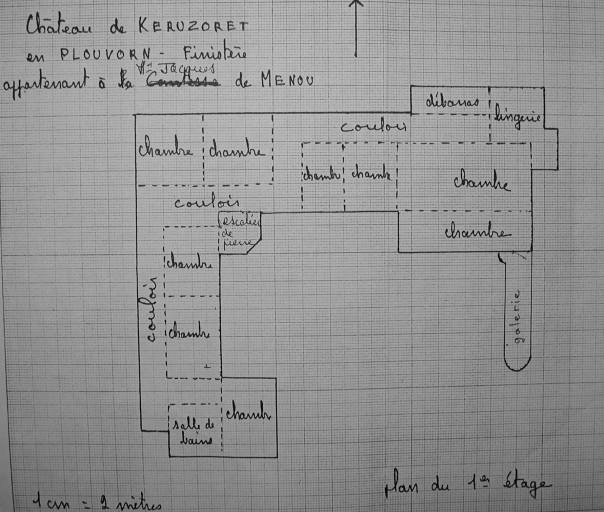 Château de KERUZORET
en PLOUVORN - Finistère
Vte Jacques
appartenant à la Comtesse de MENOU
débarras
lingerie
couloir
chambre
chambre
chambre
chambre
chambre
couloir
escalier
de
pierre
chambre
chambre
couloir
chambre
galerie
chambre
salle de
bains
plan du 1er étage
1 cm = 2 mètres